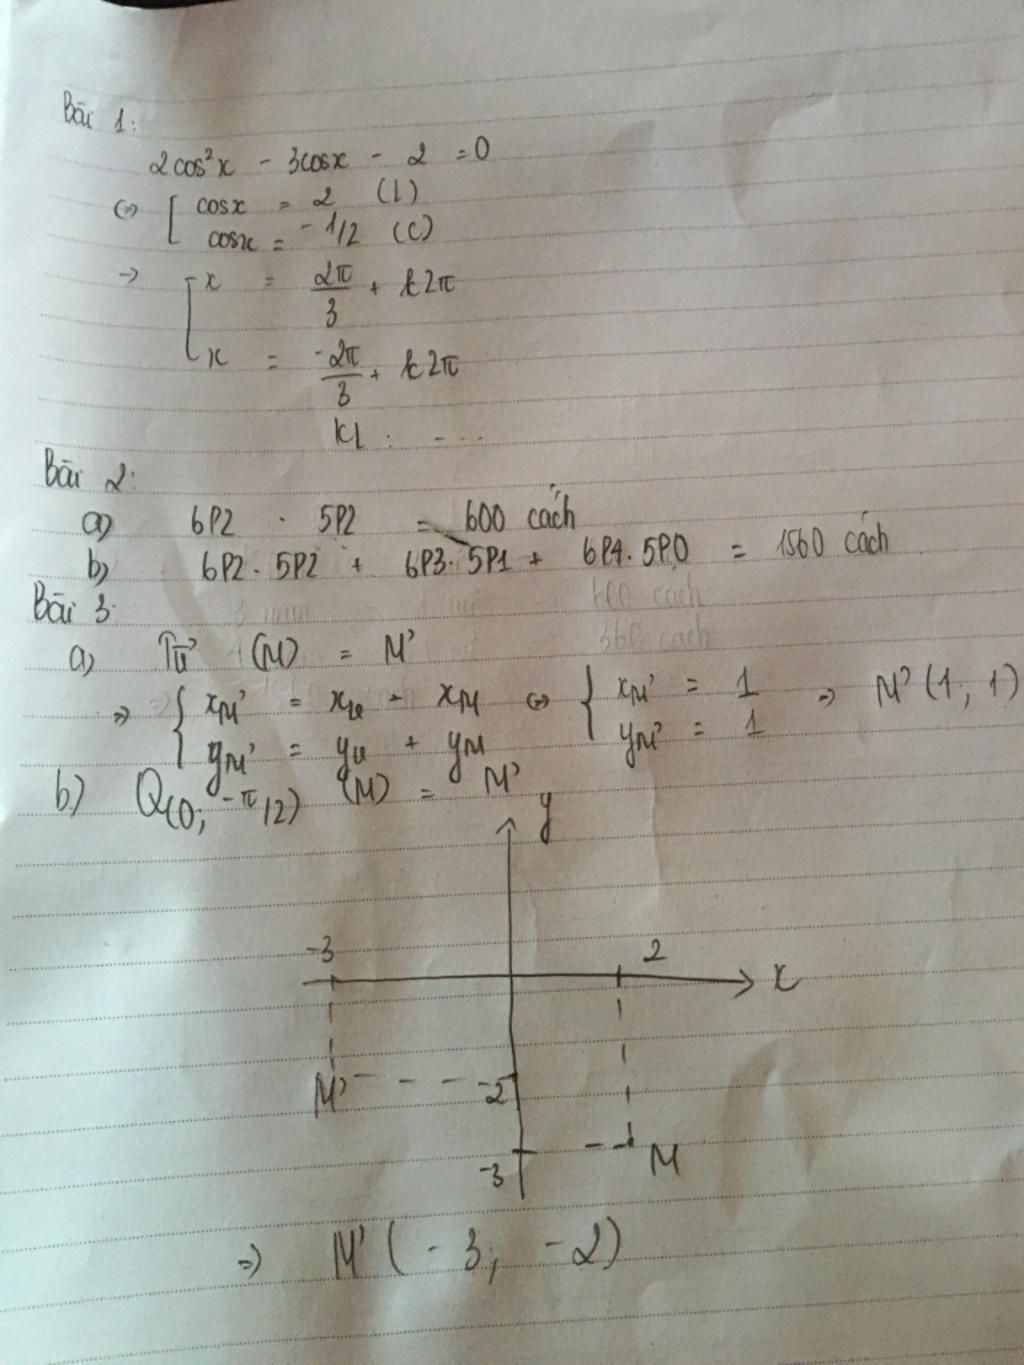 Bài 1:
2cos²x - 3cosx - 2 = 0
(=) [ cosx = 2 (L)
cosx = -1/2 (C)
-> [ x = 2π/3 + k2π
x = -2π/3 + k2π
KL : - - -
Bài 2:
a) 6P2 . 5P2 = 600 cách
b) 6P2 . 5P2 + 6P3 . 5P1 + 6P4 . 5P0 = 1560 cách
600 cach
Bài 3:
360 cach
a) (M) = M'
=> { xM' = xu - xM (=) { xM' = 1 => M' (1 ; 1)
yM' = yu + yM yM' = 1
b) Q(0; -π/2) (M) = M'
y
-3 2
x
M' -2
M
-3
=) M' ( - 3; - 2)